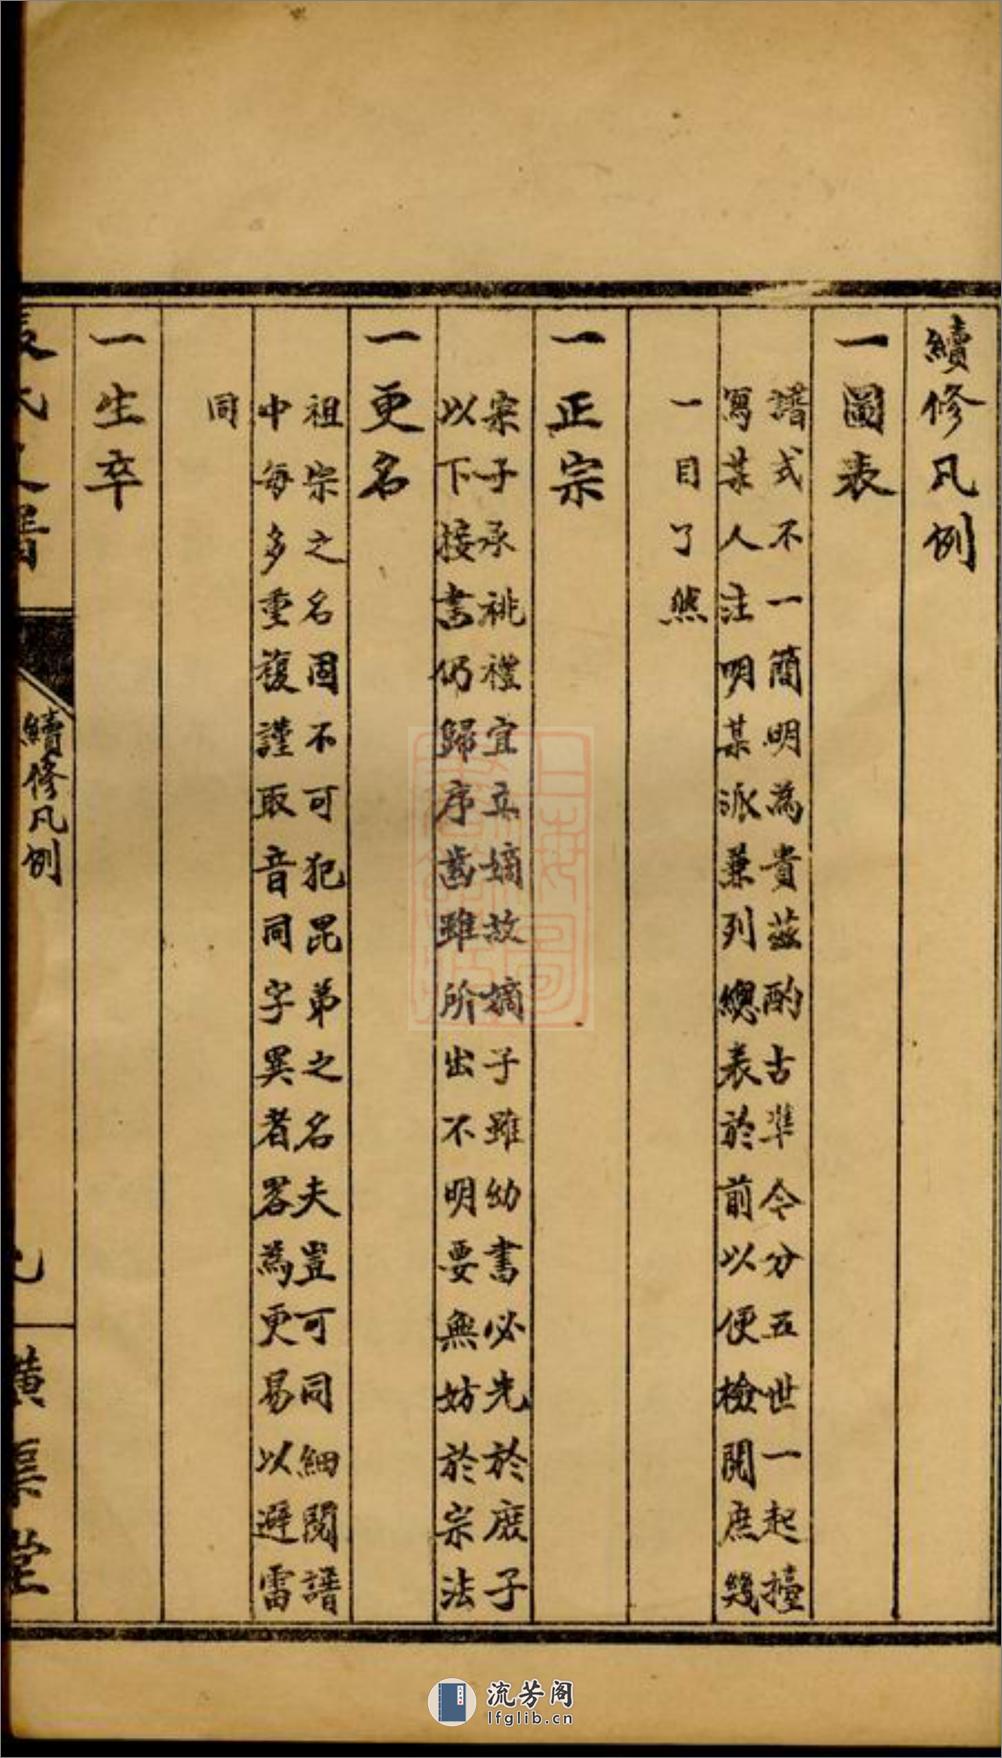 續修凡例
一圖表
譜式不一簡明為貴茲酌古準今分五世一起擡
寫某人注明某派兼列總表於前以便檢閱庶幾
一目了然
一正宗
宗子承祧禮宜立嫡故嫡子雖幼書必先於庶子
以下接書仍歸序齒雖所出不明要無妨於宗法
一更名
祖宗之名固不可犯昆弟之名夫豈可同細閱譜
中每多重複謹取音同字異者畧為更易以避雷
同
一生卒
氏
譜
續修凡例
渠堂
流芳阁
lfglib.cn